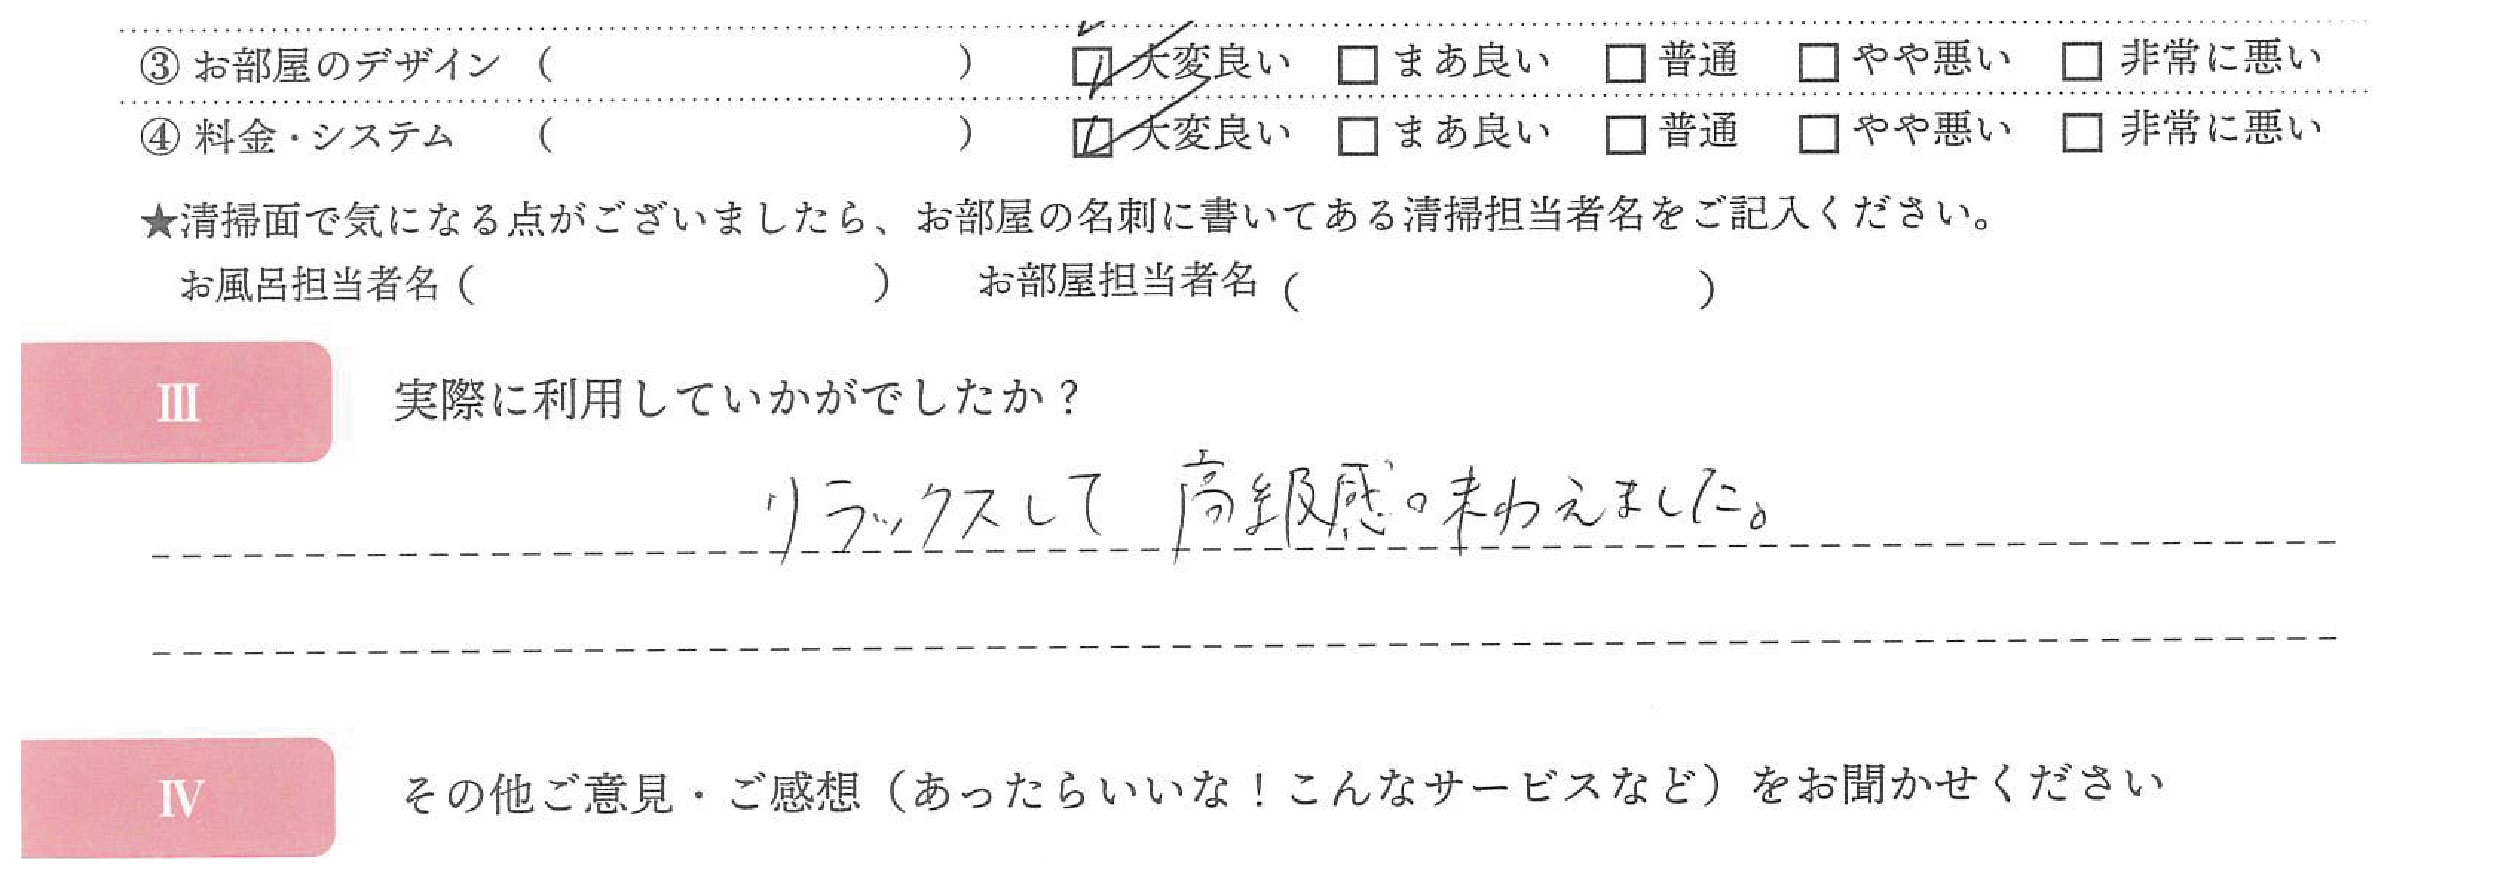 ③ お部屋のデザイン ( ) ☑ 大変良い □ まあ良い □ 普通 □ やや悪い □ 非常に悪い
④ 料金・システム ( ) ☑ 大変良い □ まあ良い □ 普通 □ やや悪い □ 非常に悪い
★清掃面で気になる点がございましたら、お部屋の名刺に書いてある清掃担当者名をご記入ください。
お風呂担当者名 ( ) お部屋担当者名 ( )
Ⅲ 実際に利用していかがでしたか?
リラックスして 高級感味わえました。
Ⅳ その他ご意見・ご感想(あったらいいな!こんなサービスなど)をお聞かせください